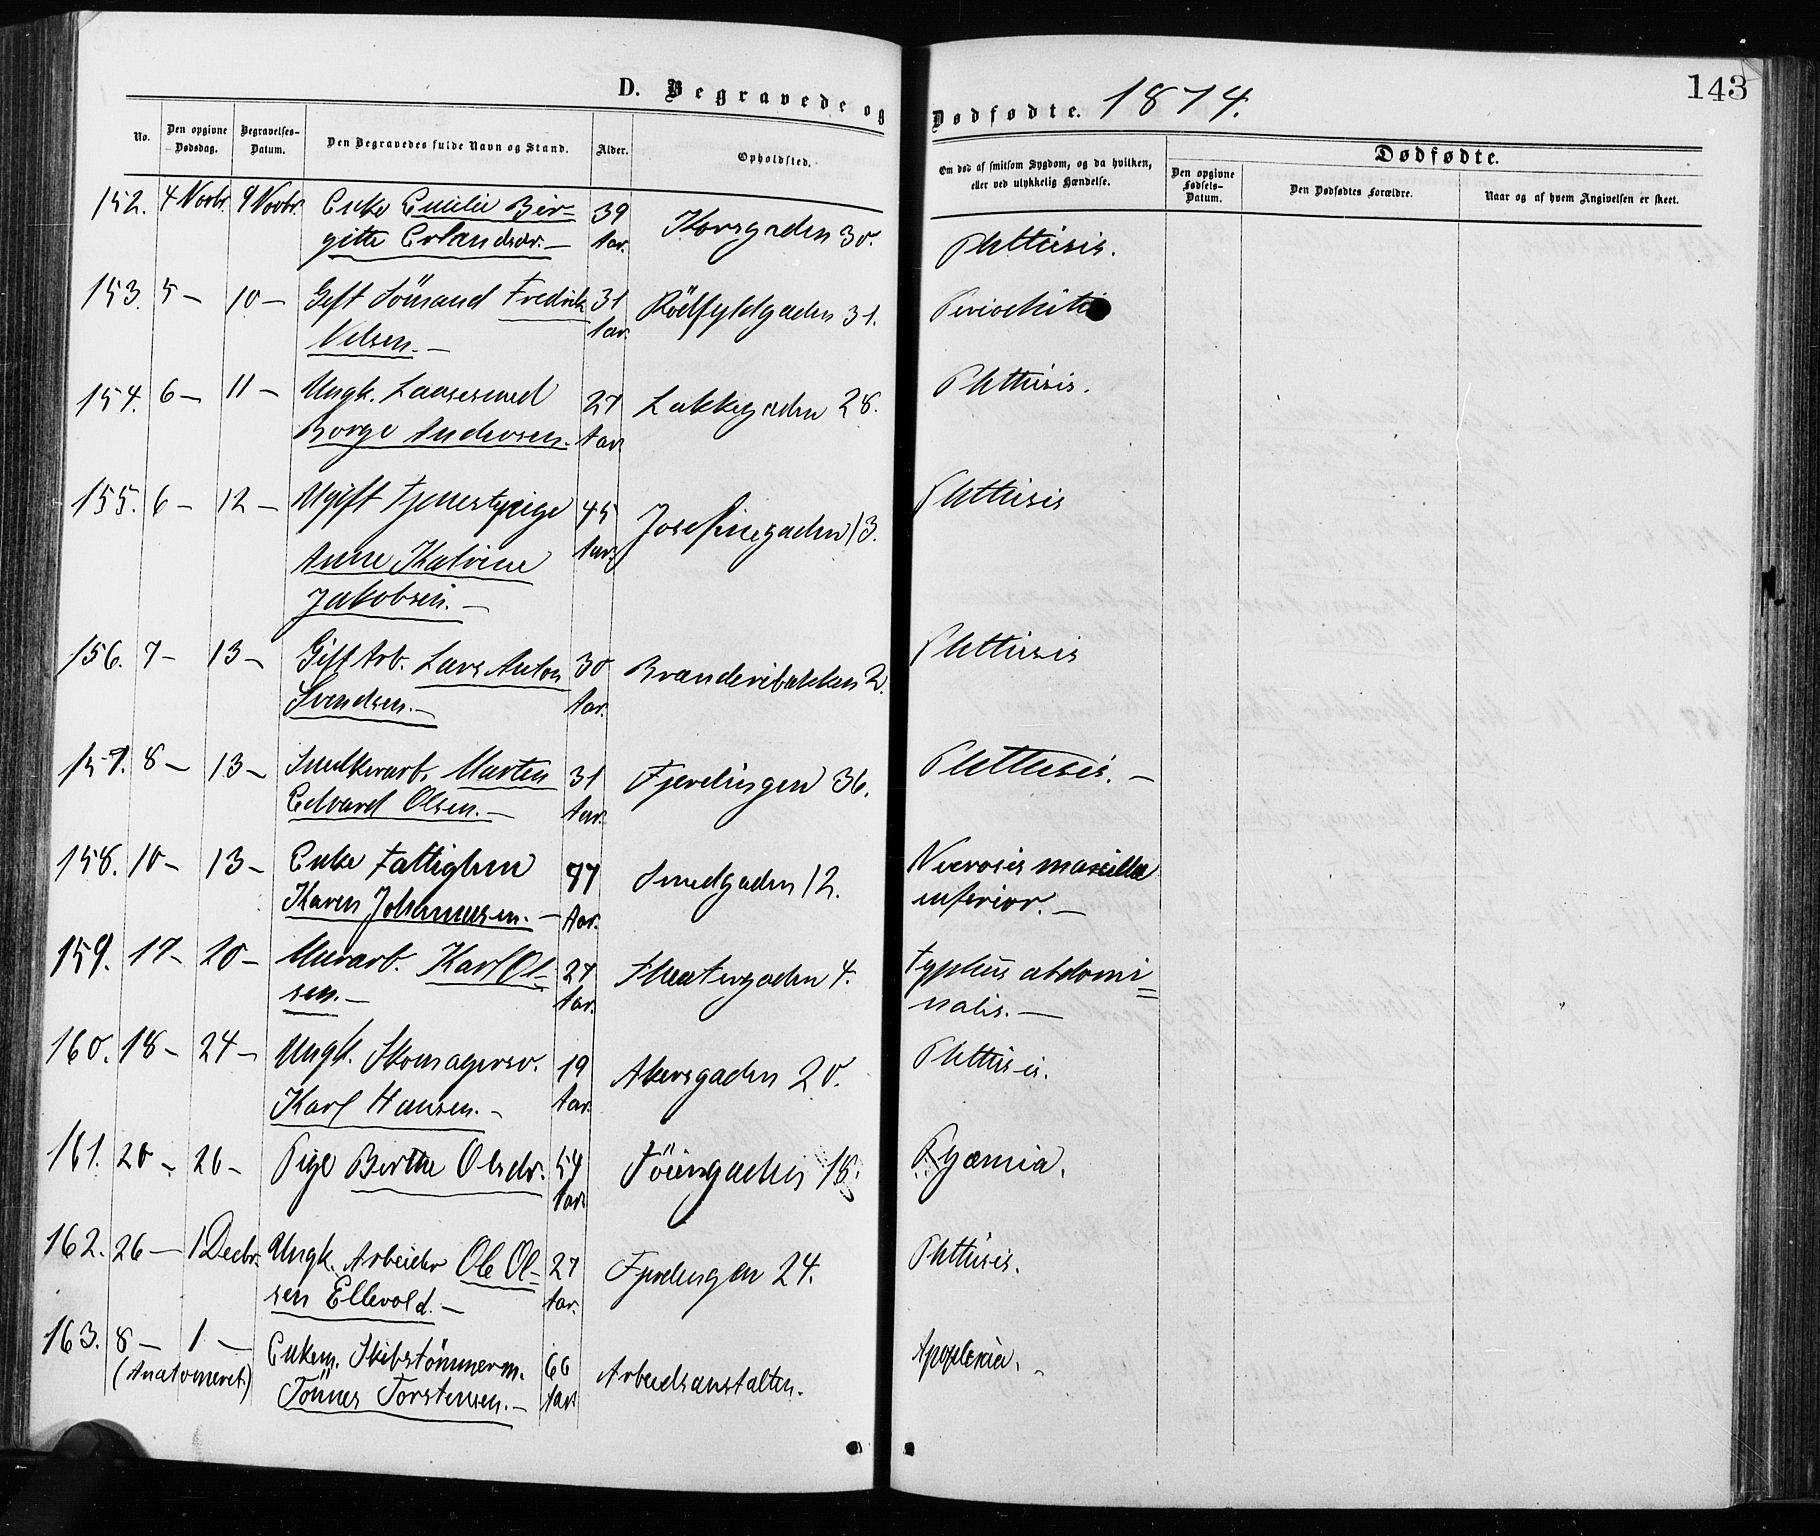 143
D. Begravede og Dødfødte. 1874.
No. Den opgivne Dødsdag. Begravelses-Datum. Den Begravedes fulde Navn og Stand. Alder. Opholdsted. Om død af smitsom Sygdom, og da hvilken, eller ved ulykkelig Hændelse. Dødfødte. Den opgivne Fødsels-Datum. Den Dødfødtes Forældre. Naar og af hvem Angivelsen er skeet.
152. 4 Novbr. 9 Novbr. Enke Emilie Bir- 39 Korsgaden 30. Phthisis.
gitte Erlandsdr. – Aar.
153. 5 – 10 – Gift Sömand Fredrik 31 Rölfyldgaden 31.
Nelsen. – Aar.
154. 6 – 11 – Ungk. Laasesmed 27 Lakkegaden 28. Phthisis.
Borge Andersen. Aar
155. 6 – 12 – Ugift Tjenestpige 45 Josefinegaden 13. Phthisis
Anne Katrine Aar
Jakobsen. –
156. 7 – 13 – Gift Arb. Lars Anton 30 2. Phthisis
Svendsen. – Aar.
157. 8 – 13 – Snedkerarb. Marten 31 Fjerdingen 36. Phthisis. –
Edvard Olsen. – Aar.
158. 10 – 13 – Enke Fattiglem 77 Smedgaden 12. Necrosis maxilla
Karen Johannesen. – Aar. inferior. –
159. 17 – 20 – Murarb. Karl Ol- 27 Theatergaden 4. Typhus abdomi=
sen. – Aar. nalis. –
160. 18 – 24 – Ungk. Skomagersv. 19 Akersgaden 20. Phthisis.
Karl Hansen. – Aar.
161. 20 – 26 – Pige Berthe Olsdr. 54 Töiengaden 18. Pyæmia.
Aar
162. 26 – 1 Decbr. Ungk. Arbeider Ole Ol- 27 Fjerdingen 24. Phthisis.
sen Ellevold. – Aar.
163. 8 – 1 – Enkem. Skibstömmerm. 66 Arbeidsanstalten. Apoplexia. –
(Anatomeret) Tönnes Torstensen. – Aar